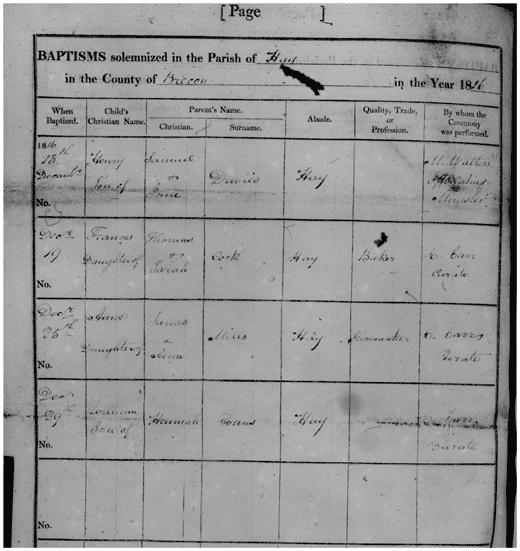 [Page ]
BAPTISMS solemnized in the Parish of Hay
in the County of Brecon in the Year 1816
When Baptized. Child's Christian Name. Parent's Name. Christian. Surname. Abode. Quality, Trade, or Profession. By whom the Ceremony was performed.
1816
13th Henry Samuel M. Walters
Decembr Son of & Jane Davies Hay Minister
No.
Decr Frances Thomas
19 Daughter of & Sarah Cock Hay Baker C. Carr
Curate
No.
Decr Anne James
25th Daughter of & Ann Miles Hay Shoemaker C. Carr
Curate
No.
Dec
29th William Hannah Evans Hay C. Carr
Son of Curate
No.
No.